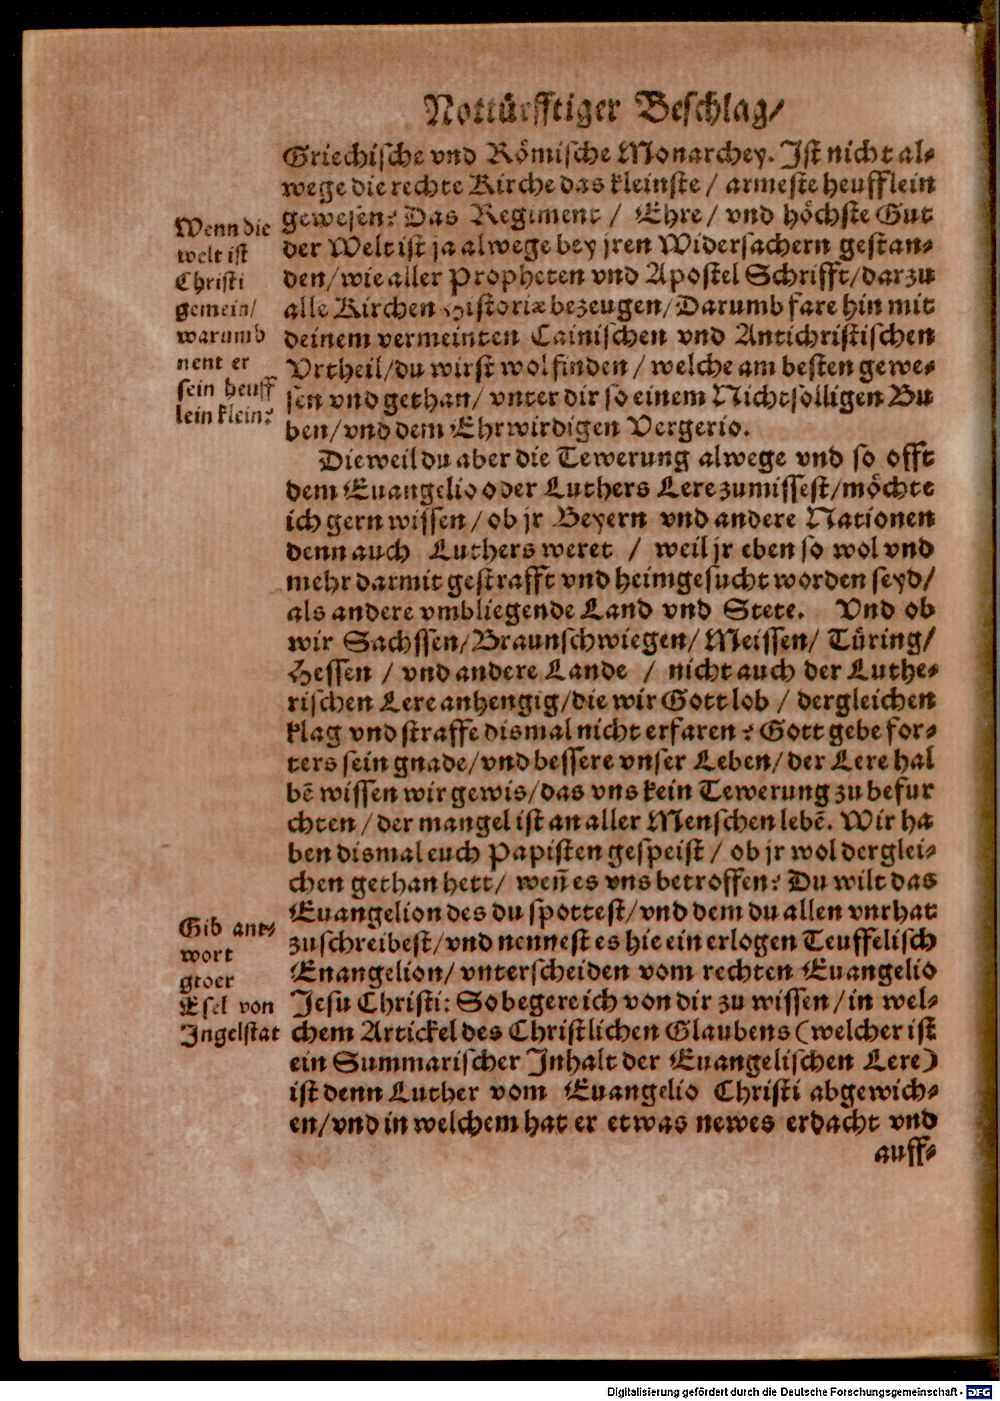 Nottürfftiger Beschlag/
Griechische vnd Römische Monarchey. Ist nicht al⸗
wege die rechte Kirche das kleinste / armeste heufflein
gewesen? Das Regiment / Ehre / vnd höchste Gut
der Welt ist ja alwege bey jren Widersachern gestan⸗
den/wie aller Propheten vnd Apostel Schrifft/darzu
alle Kirchen Historiæ bezeugen/Darumb fare hin mit
deinem vermeinten Cainischen vnd Antichristischen
Vrtheil/du wirst wol finden / welche am besten gewe⸗
sen vnd gethan/ vnter dir so einem Nichtsolligen Bu
ben/vnd dem Ehrwirdigen Vergerio.
Wenn die
welt ist
Christi
gemein/
warumb
nent er
sein heuff
lein klein?
Dieweil du aber die Tewerung alwege vnd so offt
dem Euangelio oder Luthers Lere zumissest/möchte
ich gern wissen / ob jr Beyern vnd andere Nationen
denn auch Luthers weret / weil jr eben so wol vnd
mehr darmit gestrafft vnd heimgesucht worden seyd/
als andere vmbliegende Land vnd Stete. Vnd ob
wir Sachssen/Braunschwiegen/ Meissen/ Türing/
Hessen / vnd andere Lande / nicht auch der Luthe⸗
rischen Lere anhengig/die wir Gott lob / dergleichen
klag vnd straffe dismal nicht erfaren? Gott gebe for⸗
ters sein gnade/vnd bessere vnser Leben/der Lere hal
bē wissen wir gewis/das vns kein Tewerung zu befur
chten / der mangel ist an aller Menschen lebē. Wir ha
ben dismal euch Papisten gespeist / ob jr wol derglei⸗
chen gethan hett/ weñ es vns betroffen? Du wilt das
Euangelion des du spottest/vnd dem du allen vnrhat
zuschreibest/vnd nennest es hie ein erlogen Teuffelisch
Enangelion/ vnterscheiden vom rechten Euangelio
Jesu Christi: So begere ich von dir zu wissen/in wel⸗
chem Artickel des Christlichen Glaubens (welcher ist
ein Summarischer Inhalt der Euangelischen Lere)
ist denn Luther vom Euangelio Christi abgewich⸗
en/vnd in welchem hat er etwas newes erdacht vnd
Gib ant⸗
wort
gtoer
Esel von
Ingelstat
auff⸗
Digitalisierung gefördert durch die Deutsche Forschungsgemeinschaft - DFG